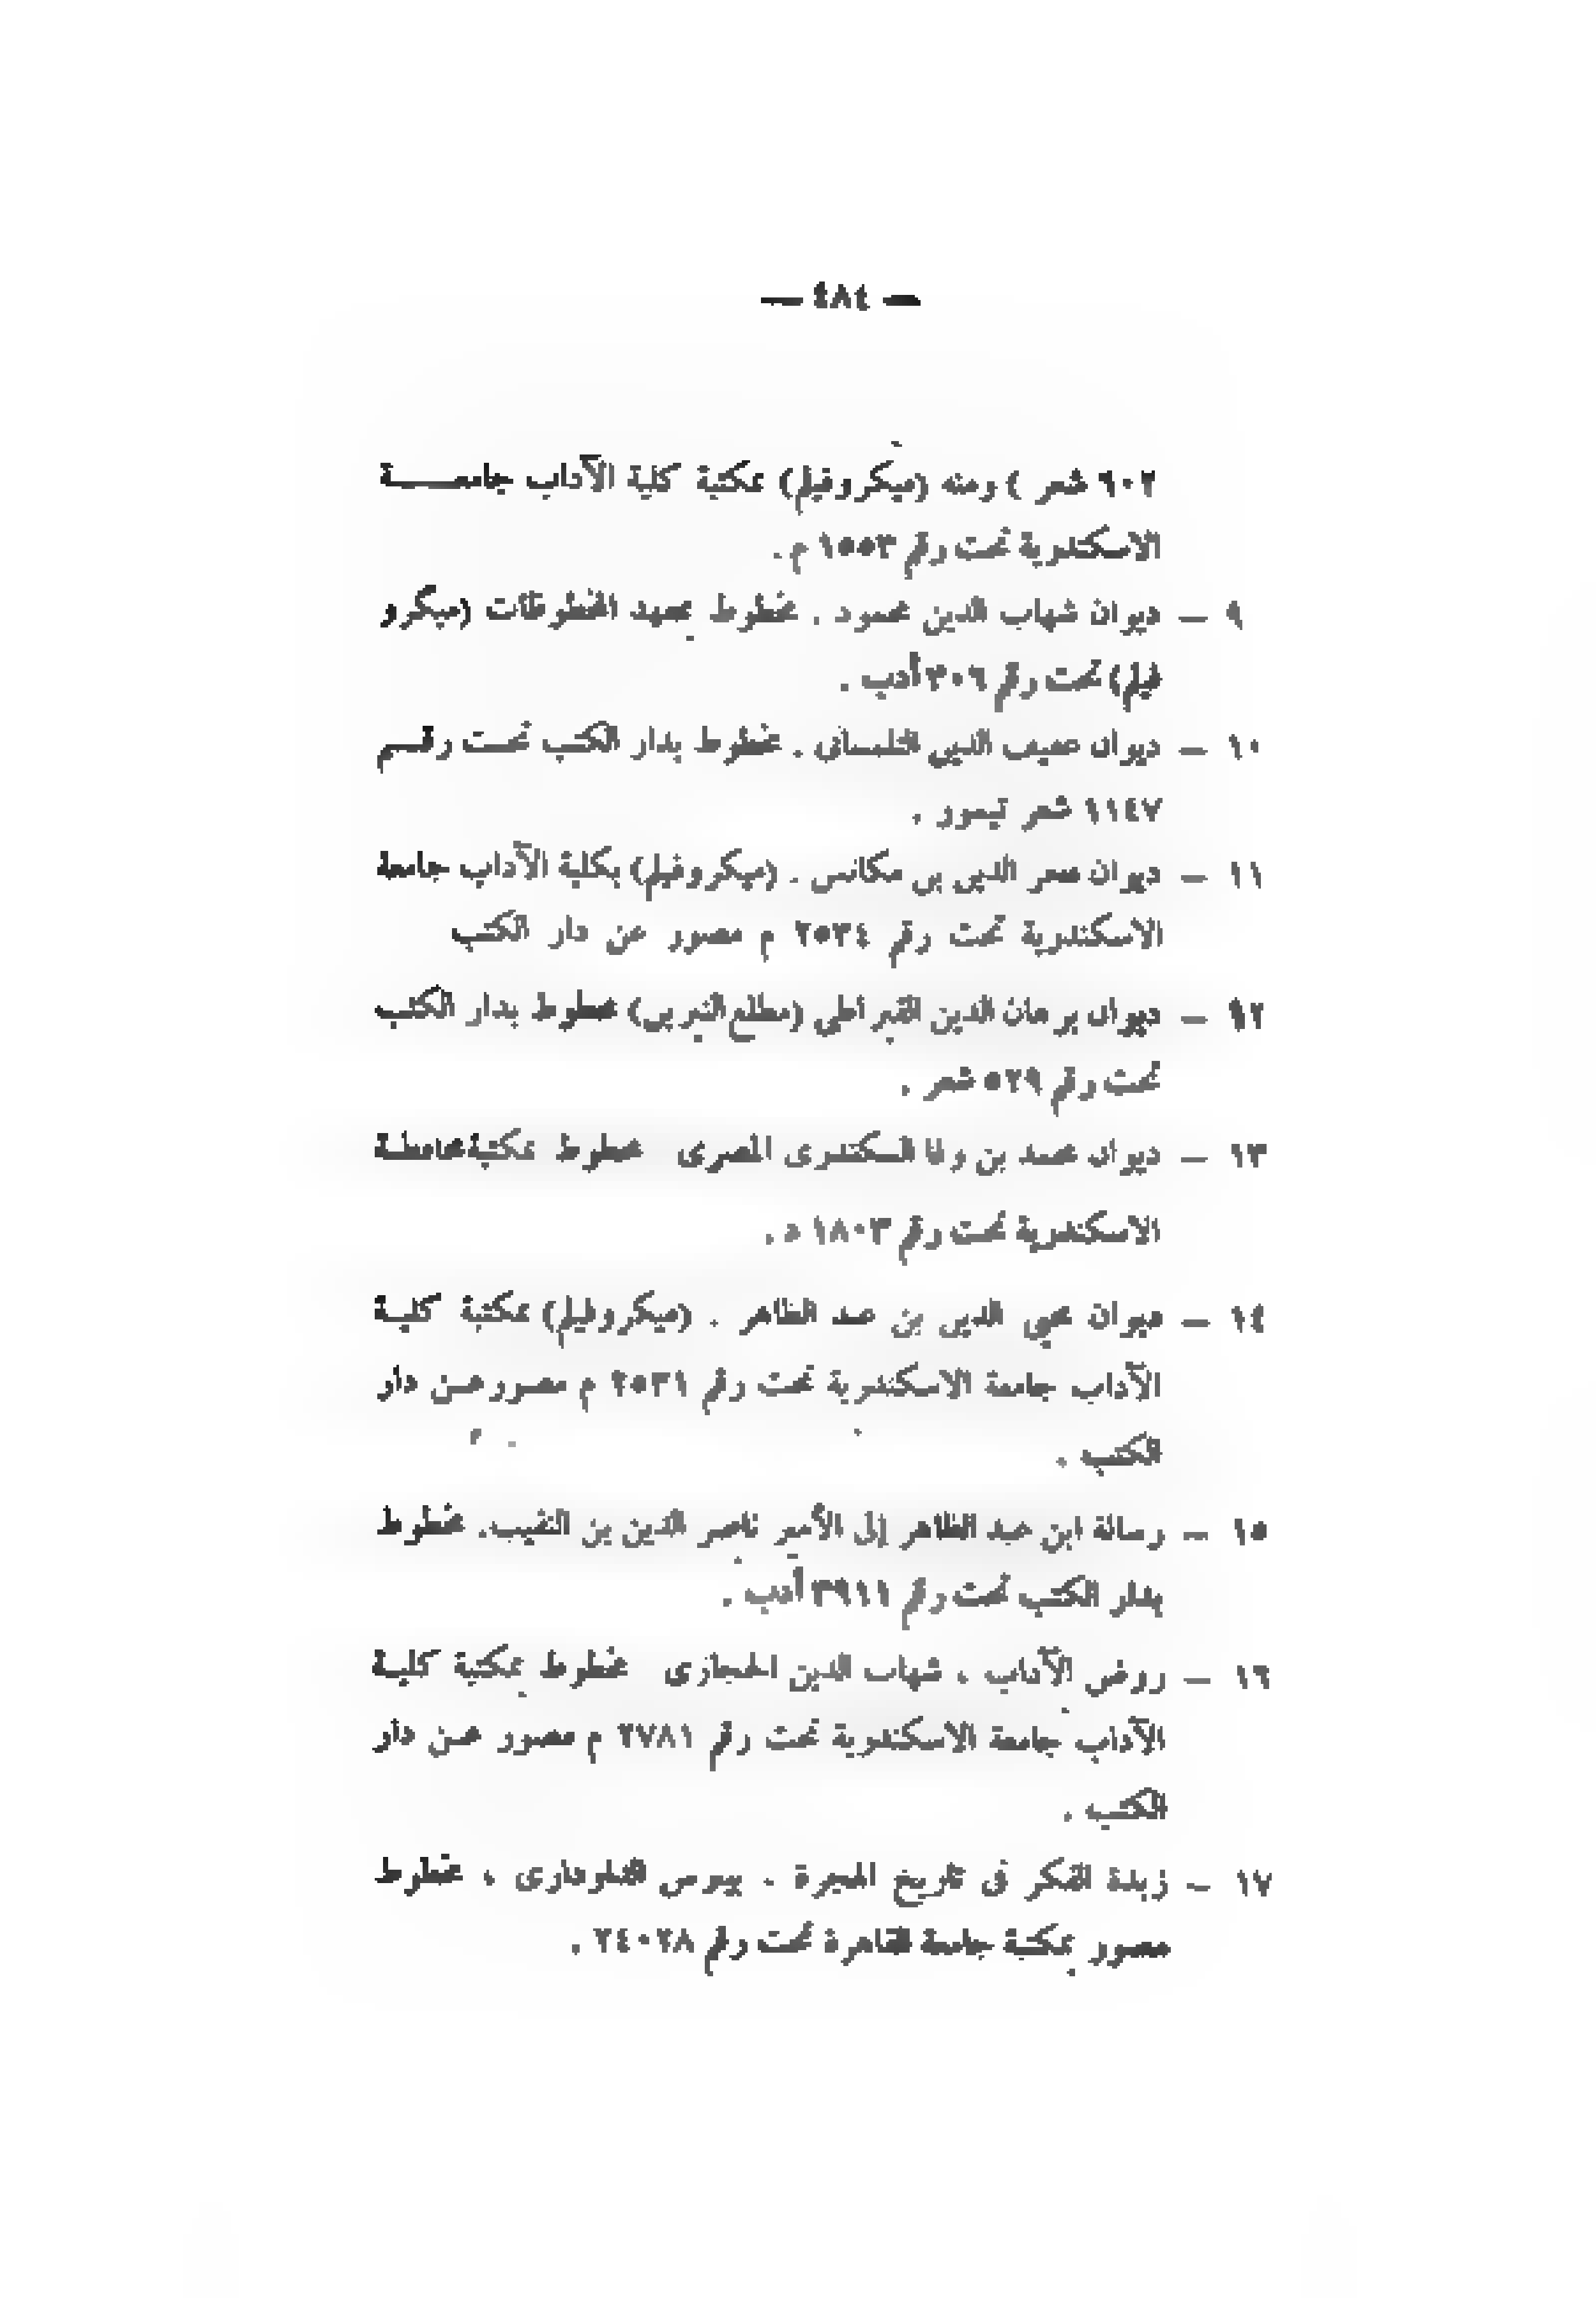 — ٤٨٤ —
٦٠٢ شعر ) ومنه (ميكروفيلم) بمكتبة كلية الآداب جامعــــة
الاسكندرية تحت رقم ١٥٥٣ م .
٩ — ديوان شهاب الدين محمود . مخطوط بمعهد المخطوطات (ميكرو
فيلم) تحت رقم ٣٠٦ أدب .
١٠ — ديوان عفيف الدين التلمسانى . مخطوط بدار الكتب تحــت رقــم
١١٤٧ شعر تيمور .
١١ — ديوان فخر الدين بن مكانس . (ميكروفيلم) بكلية الآداب جامعة
الاسكندرية تحت رقم ٢٥٣٤ م مصور عن دار الكتب
١٢ — ديوان برهان الدين القيراطي (مطلع النيرين) مخطوط بدار الكتب
تحت رقم ٥٢٩ شعر .
١٣ — ديوان محمد بن وفا السكندرى المصرى مخطوط بمكتبة محافظـة
الاسكندرية تحت رقم ١٨٠٣ د .
١٤ — ديوان محيي الدين بن عبد الظاهر . (ميكروفيلم) بمكتبة كليـة
الآداب جامعة الاسكندرية تحت رقم ٢٥٣١ م مصور عـن دار
الكتب .
١٥ — رسالة ابن عبد الظاهر إلى الأمير ناصر الدين بن النقيب. مخطوط
بدار الكتب تحت رقم ٣٩١١ أدب .
١٦ — روض الآداب ، شهاب الدين الحجازى مخطوط بمكتبة كليـة
الآداب جامعة الاسكندرية تحت رقم ٢٧٨١ م مصور عـن دار
الكتب .
١٧ — زبدة الفكر فى تاريخ الهجرة . بيبرس الدوادارى ، مخطوط
مصور بمكتبة جامعة القاهرة تحت رقم ٢٤٠٢٨ .